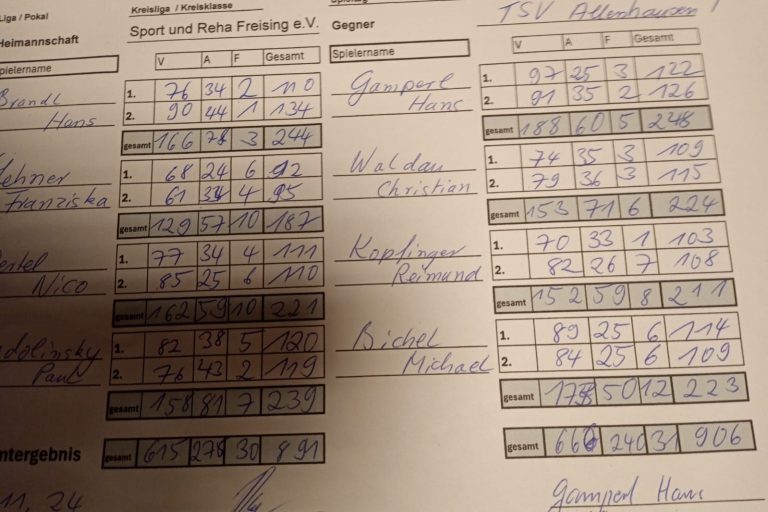 Liga / Pokal
Kreisliga / Kreisklasse
Gegner
TSV Allenhausen
Heimannschaft
Sport und Reha Freising e.V.
V A F Gesamt
Spielername
Spielername
V A F Gesamt
Brandl
Hans
1. 76 34 2 110
2. 90 44 1 134
gesamt 166 78 3 244
Gamperl
Hans
1. 97 25 3 122
2. 91 35 2 126
gesamt 188 60 5 248
Lehner
Franziska
1. 68 24 6 92
2. 61 34 4 95
gesamt 129 57 10 187
Waldau
Christian
1. 74 35 3 109
2. 79 36 3 115
gesamt 153 71 6 224
Nico
1. 77 34 4 111
2. 85 25 6 110
gesamt 162 59 10 221
Kopfinger
Reimund
1. 70 33 1 103
2. 82 26 7 108
gesamt 152 59 8 211
dolinsky
Paul
1. 82 38 5 120
2. 76 43 2 119
gesamt 158 81 7 239
Bichel
Michael
1. 89 25 6 114
2. 84 25 6 109
gesamt 173 50 12 223
ntergebnis
gesamt 615 276 30 891
gesamt 666 240 31 906
11. 24
Gamperl Hans